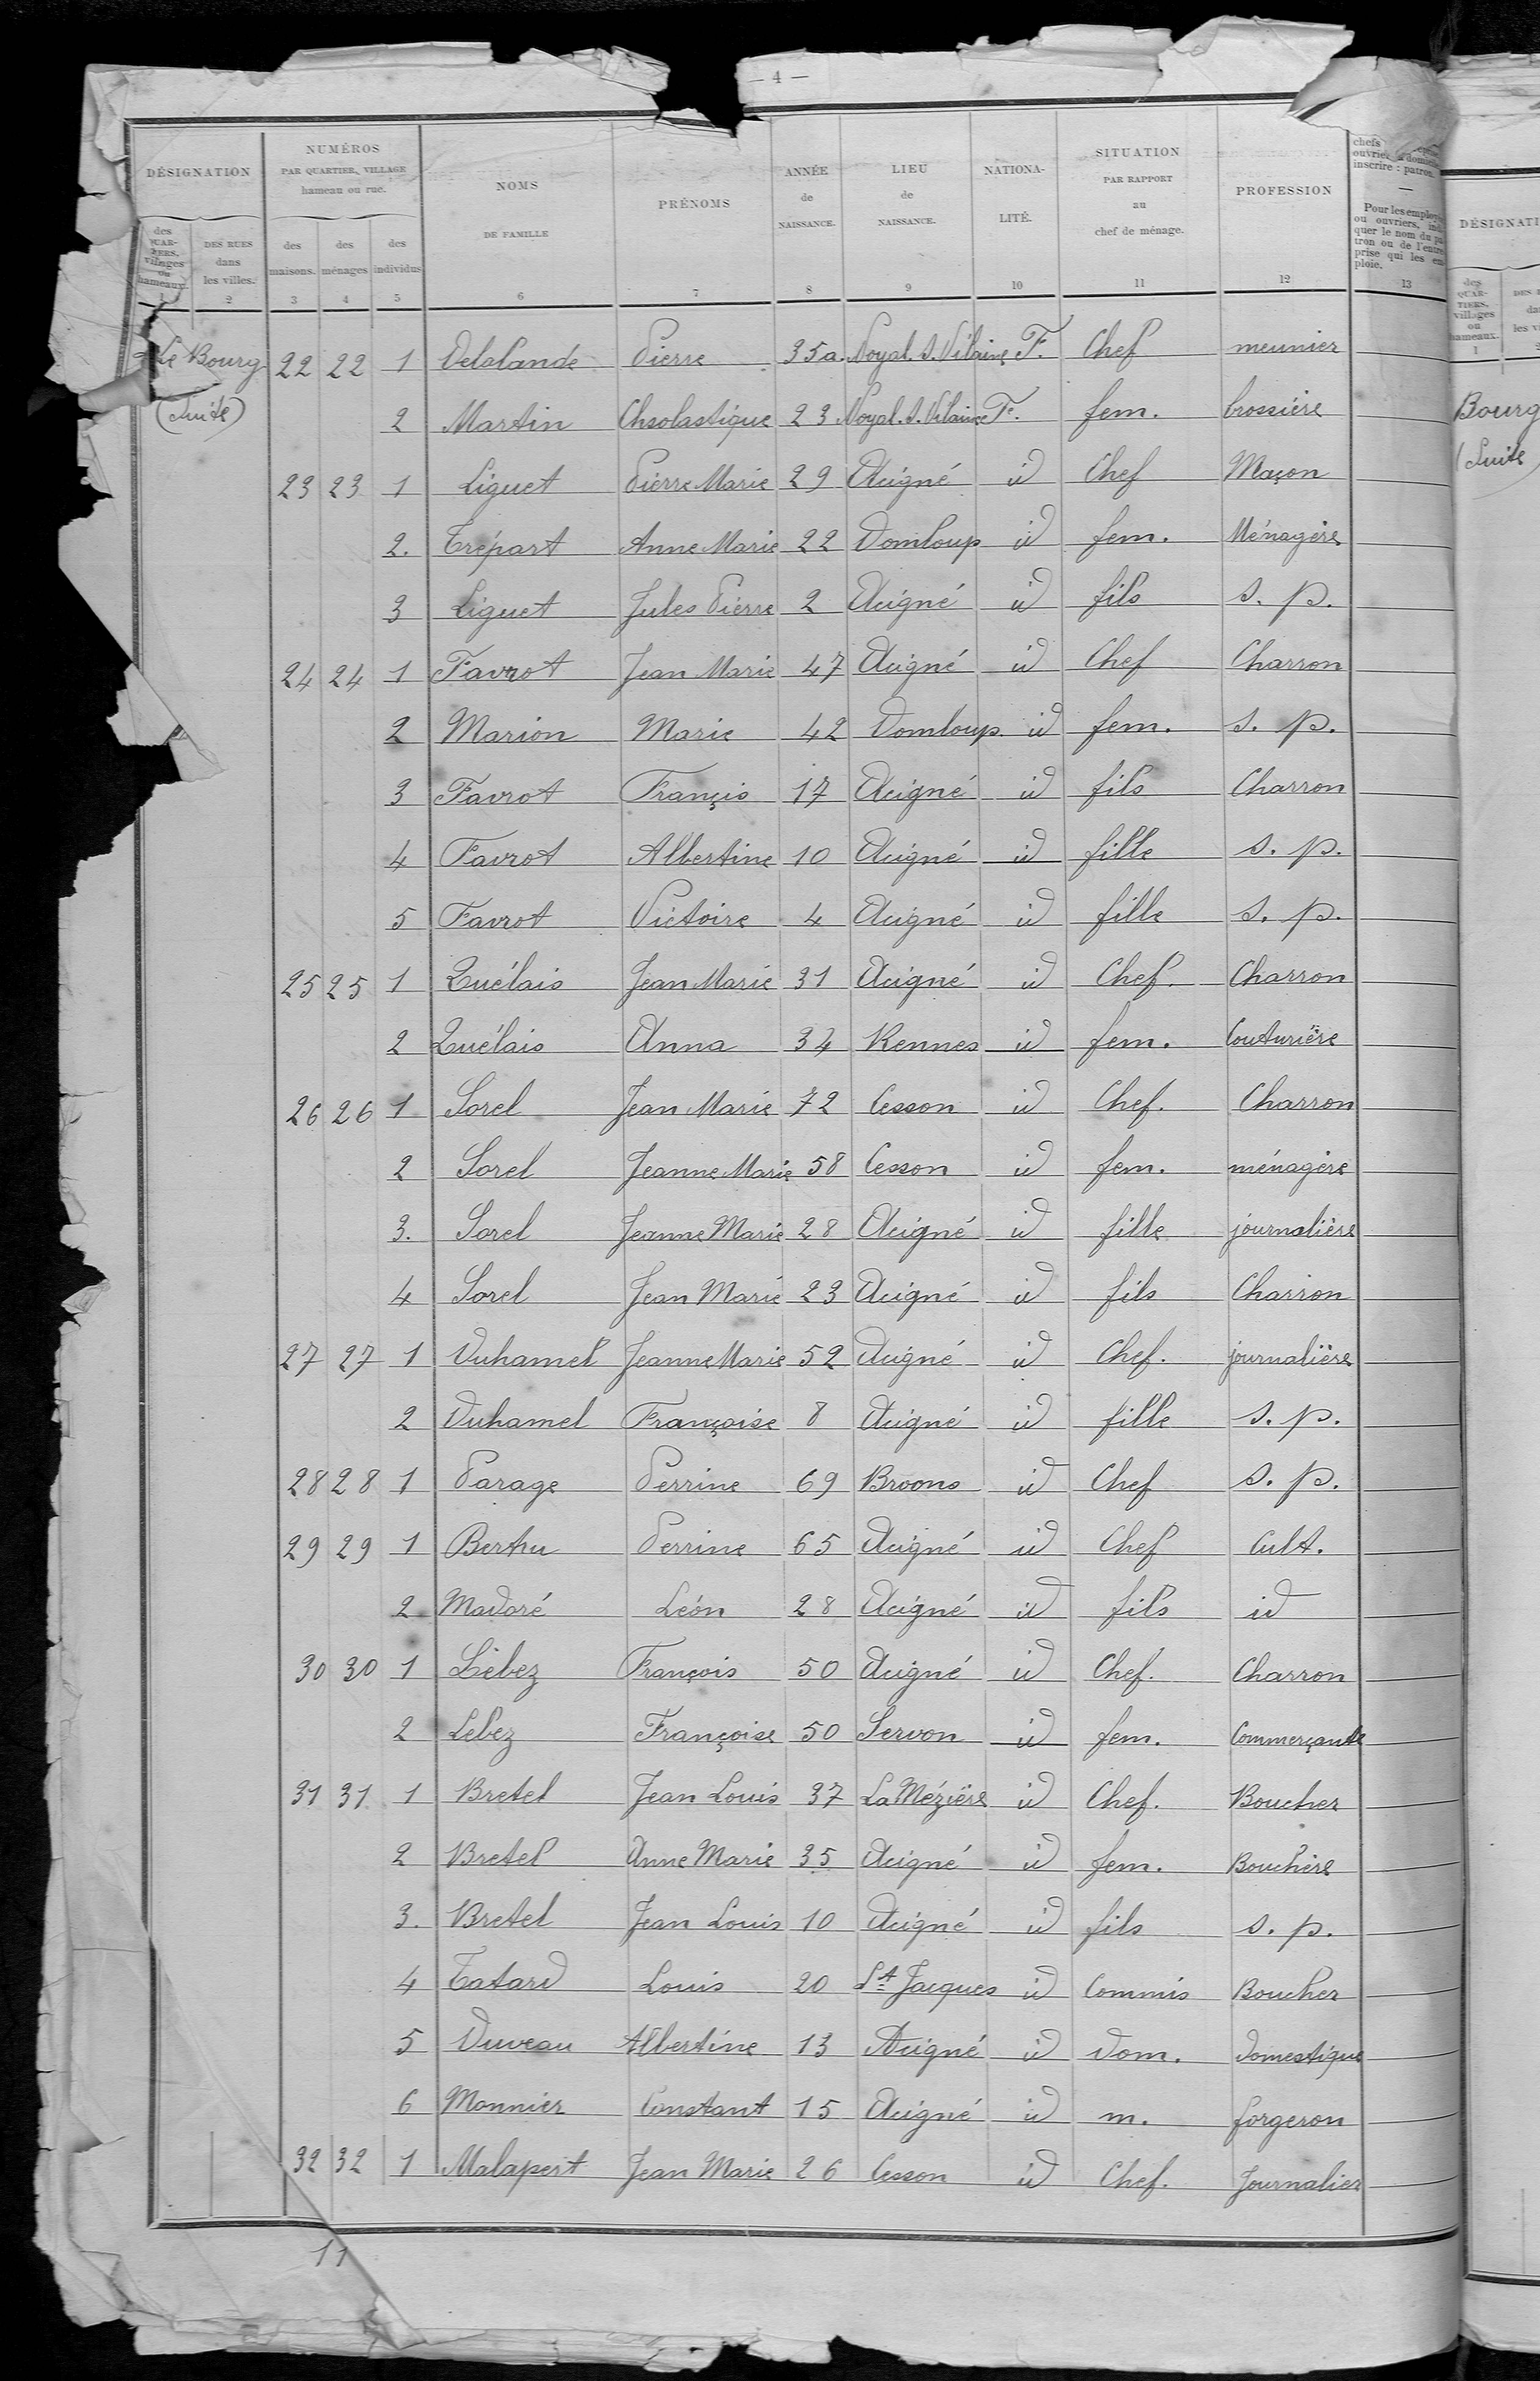 — 4 —
DÉSIGNATION
NUMÉROS
PAR QUARTIER, VILLAGE
hameau ou rue.
NOMS
DE FAMILLE
PRÉNOMS
ANNÉE
de
NAISSANCE.
LIEU
de
NAISSANCE.
NATIONA-
LITÉ.
SITUATION
PAR RAPPORT
au
chef de ménage.
PROFESSION
chefs
ouvriers à domicile
inscrire : patron.
—
Pour les employés
ou ouvriers, indi-
quer le nom du pa-
tron ou de l'entre-
prise qui les em-
ploie.
des
QUAR-
TIERS,
villages
ou
hameaux.
DES RUES
dans
les villes.
des
maisons.
des
ménages
des
individus
1 2 3 4 5 6 7 8 9 10 11 12 13
Le Bourg 22 22 1 Delalande Pierre 35 a. Noyal. s. Vilaine F. Chef meunier
(Suite) 2 Martin Chsolastique 23 Noyal. s. Vilaine F. fem. brossière
23 23 1 Liguet Pierre Marie 29 Acigné id Chef Maçon
2. Trépart Anne Marie 22 Domloup id fem. Ménagère
3 Liguet Jules Pierre 2 Acigné id fils s. p.
24 24 1 Favrot Jean Marie 47 Acigné id Chef Charron
2 Marion Marie 42 Domloup id fem. s. p.
3 Favrot Françis 17 Acigné id fils Charron
4 Favrot Albertine 10 Acigné id fille s. p.
5 Favrot Victoire 4 Acigné id fille s. p.
25 25 1 Quélais Jean Marie 31 Acigné id Chef. Charron
2 Quélais Anna 34 Rennes id fem. Couturière
26 26 1 Sorel Jean Marie 72 Cesson id Chef. Charron
2 Sorel Jeanne Marie 58 Cesson id fem. ménagère
3. Sorel Jeanne Marie 28 Acigné id fille journalière
4 Sorel Jean Marie 23 Acigné id fils Charron
27 27 1 Duhamel Jeanne Marie 52 Acigné id Chef. journalière
2 Duhamel Françoise 8 Acigné id fille s. p.
28 28 1 Parage Perrine 69 Broons id Chef s. p.
29 29 1 Berthu Perrine 65 Acigné id Chef Cult.
2 Madoré Léon 28 Acigné id fils id
30 30 1 Lebez François 50 Acigné id Chef. Charron
2 Lebez Françoise 50 Servon id fem. Commerçante
31 31 1 Bretel Jean Louis 37 La Mézière id Chef. Boucher
2 Bretel Anne Marie 35 Acigné id fem. Bouchère
3. Bretel Jean Louis 10 Acigné id fils s. p.
4 Tatard Louis 20 St Jacques id Commis Boucher
5 Duveau Albertine 13 Acigné id dom. domestique
6 Monnier Constant 15 Acigné id m. forgeron
32 32 1 Malapert Jean Marie 26 Cesson id Chef. Journalier
11
DÉSIGNATI
des
QUAR-
TIERS,
villages
ou
hameaux.
1
Bourg
(Suite